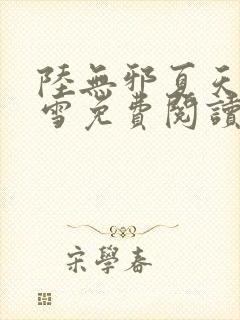 陸無邪夏天
雪免費閱讀
宋學春